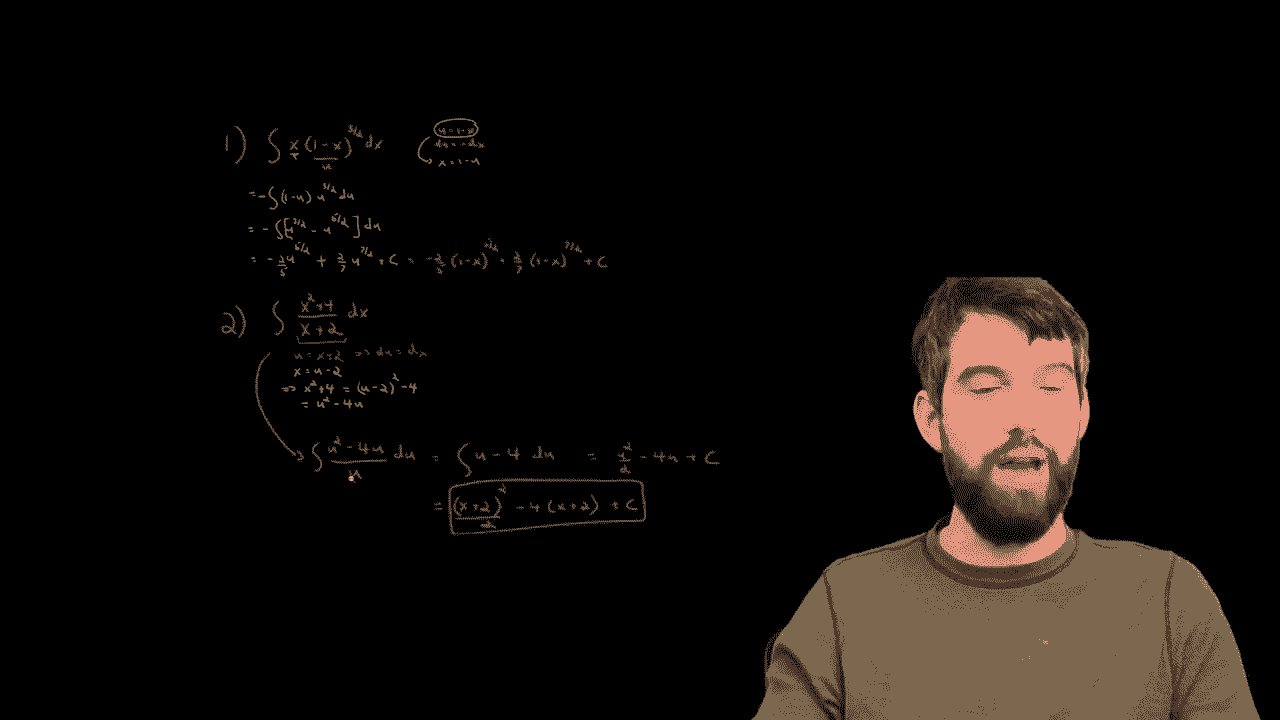 1) ∫ x (1-x)^{3/2} dx
u = 1-x
du = -dx
x = 1-u
= -∫ (1-u) u^{3/2} du
= -∫ [u^{3/2} - u^{5/2}] du
= -2/5 u^{5/2} + 2/7 u^{7/2} + C = -2/5 (1-x)^{5/2} + 2/7 (1-x)^{7/2} + C
2) ∫ (x^2+4)/(x+2) dx
u = x+2 => du = dx
x = u-2
=> x^2+4 = (u-2)^2 - 4
= u^2 - 4u
=> ∫ (u^2 - 4u)/u du = ∫ u - 4 du = u^2/2 - 4u + C
= (x+2)^2/2 - 4(x+2) + C